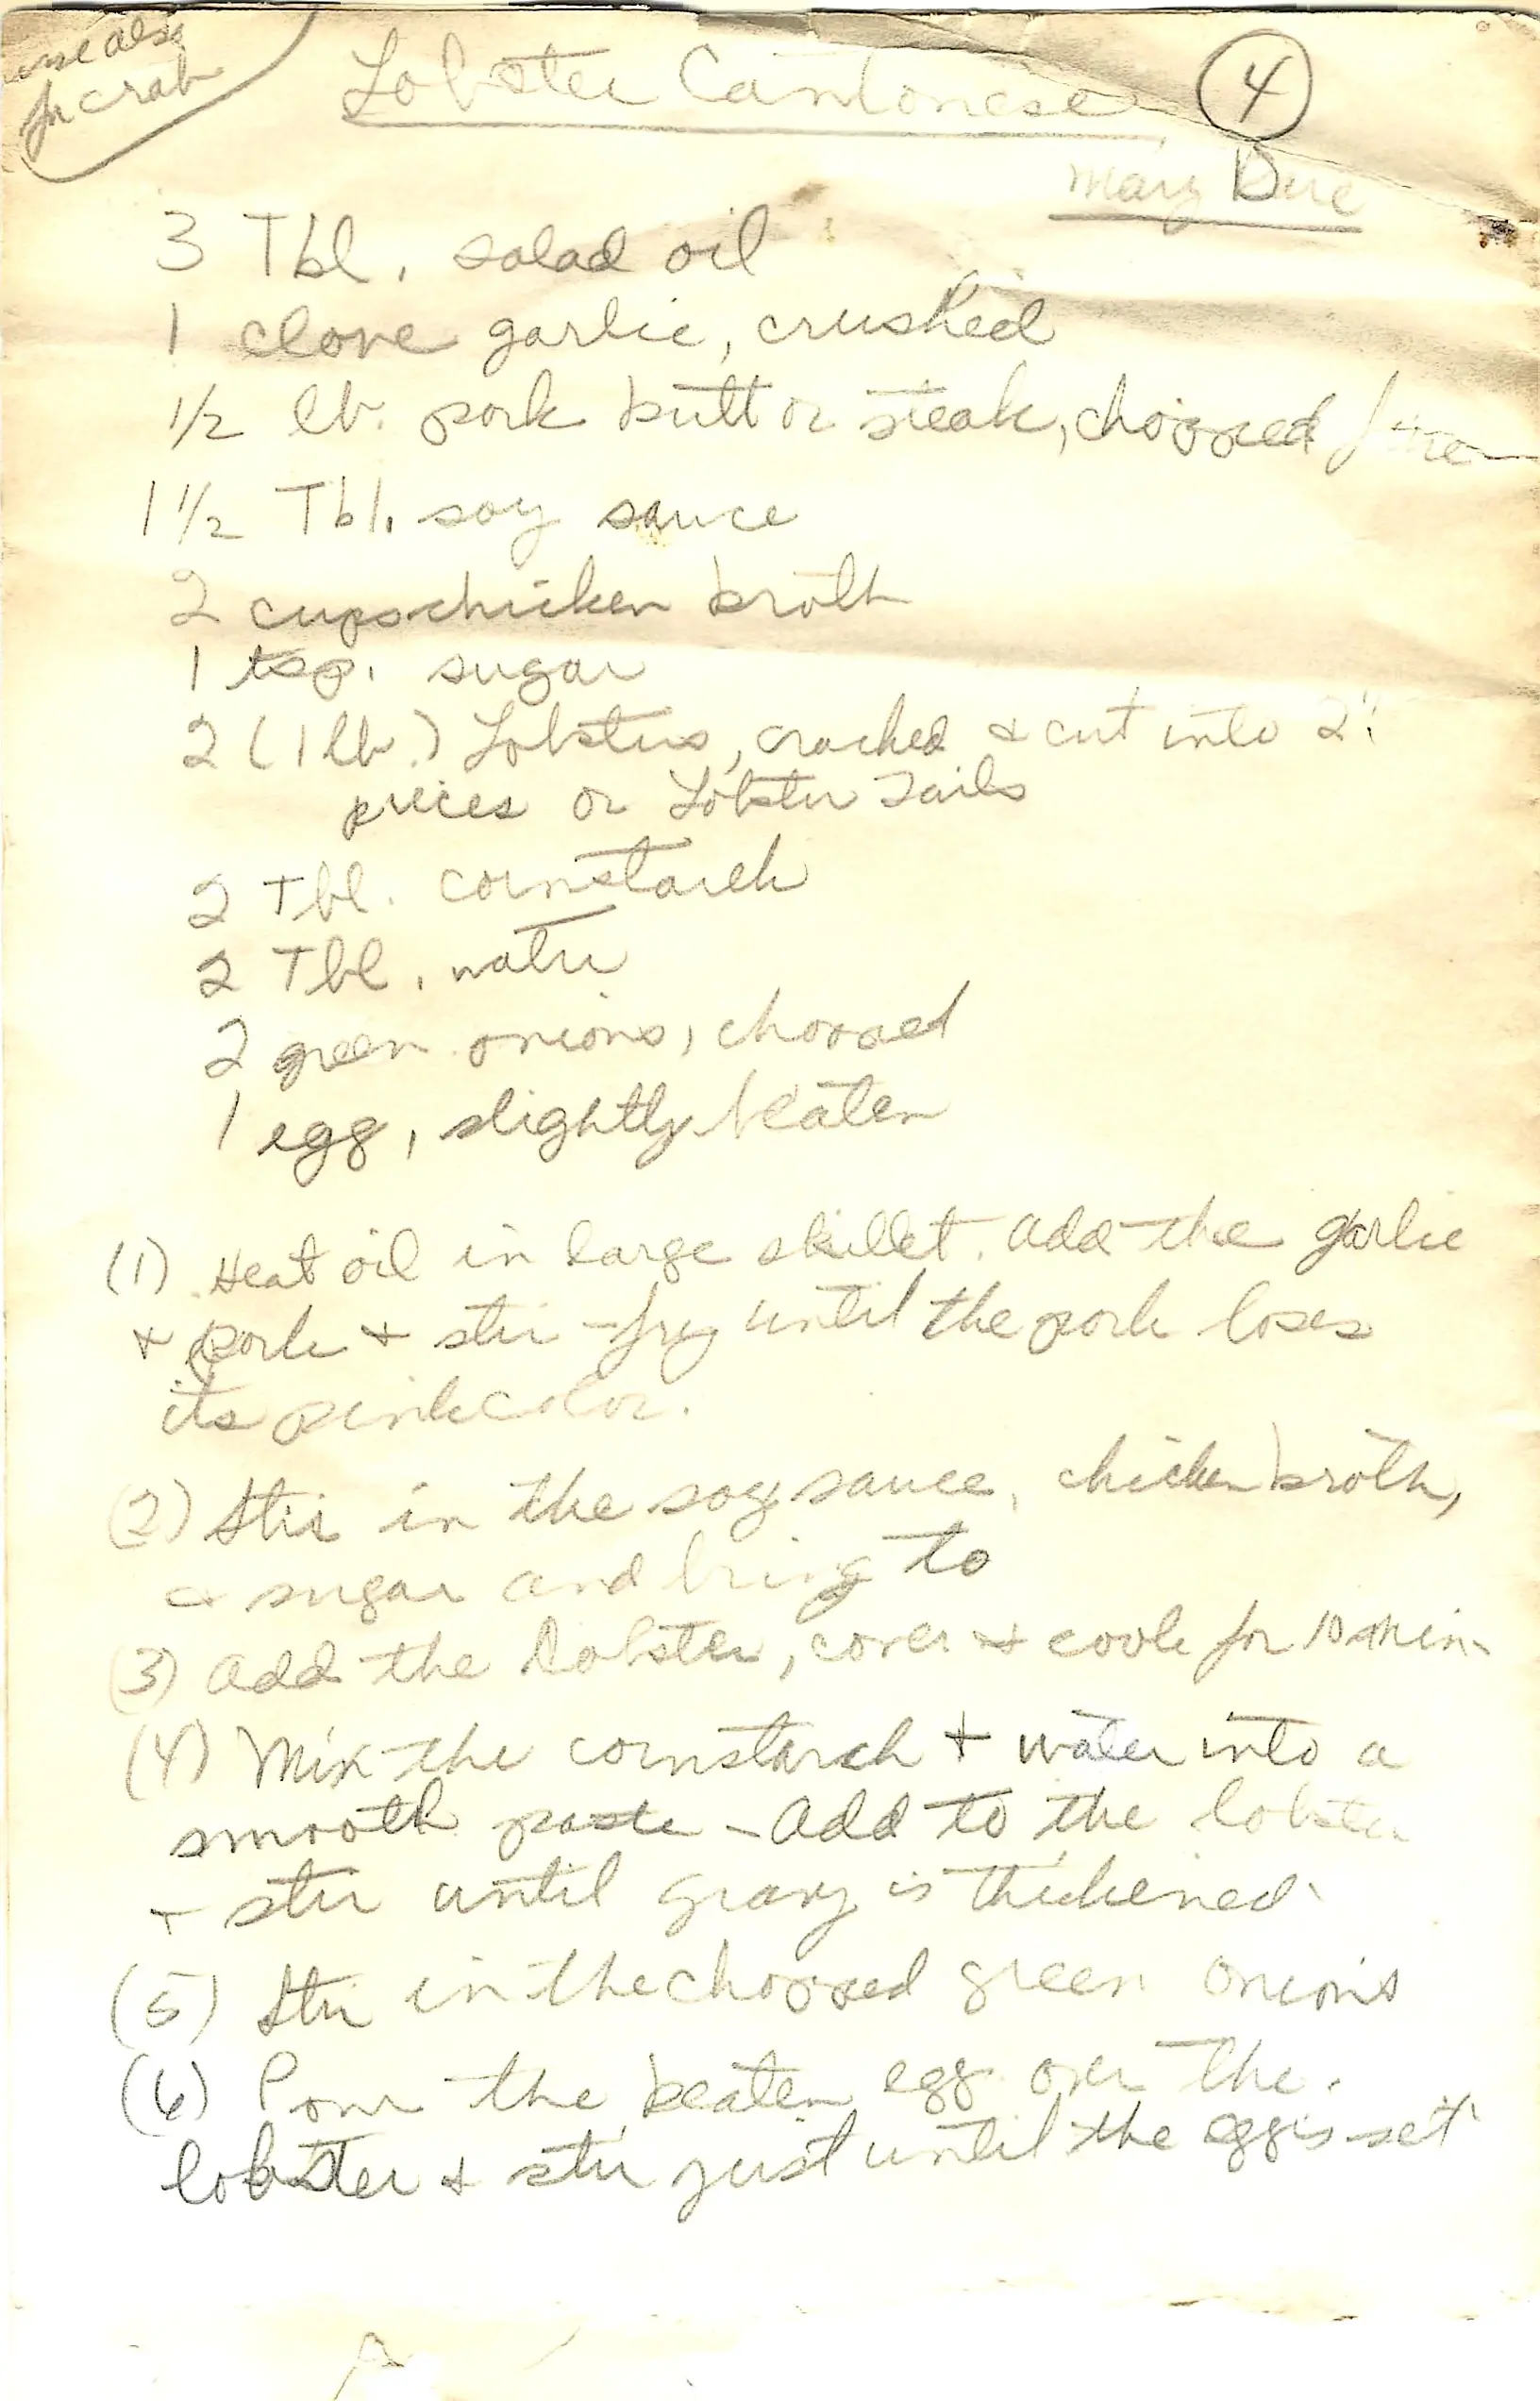 use also
for crab
Lobster Cantonese 4
Mary
3 Tbl. salad oil
1 clove garlic, crushed
1/2 lb. pork butt or steak, chopped fine
1 1/2 Tbl. soy sauce
2 cups chicken broth
1 tsp. sugar
2 (1 lb.) Lobsters, cracked & cut into 2"
pieces or Lobster Tails
2 Tbl. cornstarch
2 Tbl. water
2 green onions, chopped
1 egg, slightly beaten
(1) Heat oil in large skillet. add the garlic
+ pork + stir-fry until the pork loses
its pink color.
(2) Stir in the soy sauce, chicken broth,
& sugar and bring to
(3) add the Lobster, cover & cook for 10 min.
(4) Mix the cornstarch + water into a
smooth paste - Add to the lobster
+ stir until gravy is thickened.
(5) Stir in the chopped green onions
(6) Pour the beaten egg over the
lobster & stir just until the egg is set